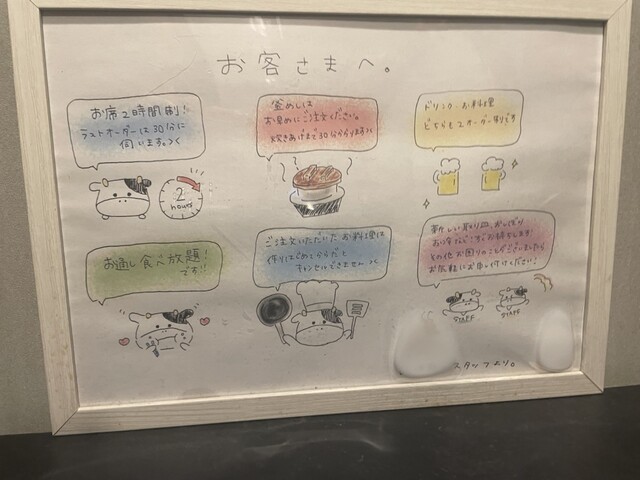 お客さまへ。
お席2時間制!
ラストオーダーは30分前に
伺います。
2
hours
釜めしは
お早めにご注文ください。
炊きあげまで30分かかります
ドリンク、お料理
どちらもオーダー制です
お通し食べ放題!
です!!
ご注文いただいたお料理は
作りはじめてからだと
キャンセルできません
新しい取り皿、おしぼり
その他お困りのことがございましたら
お気軽にお申し付けください!
STAFF
STAFF
スタッフより。